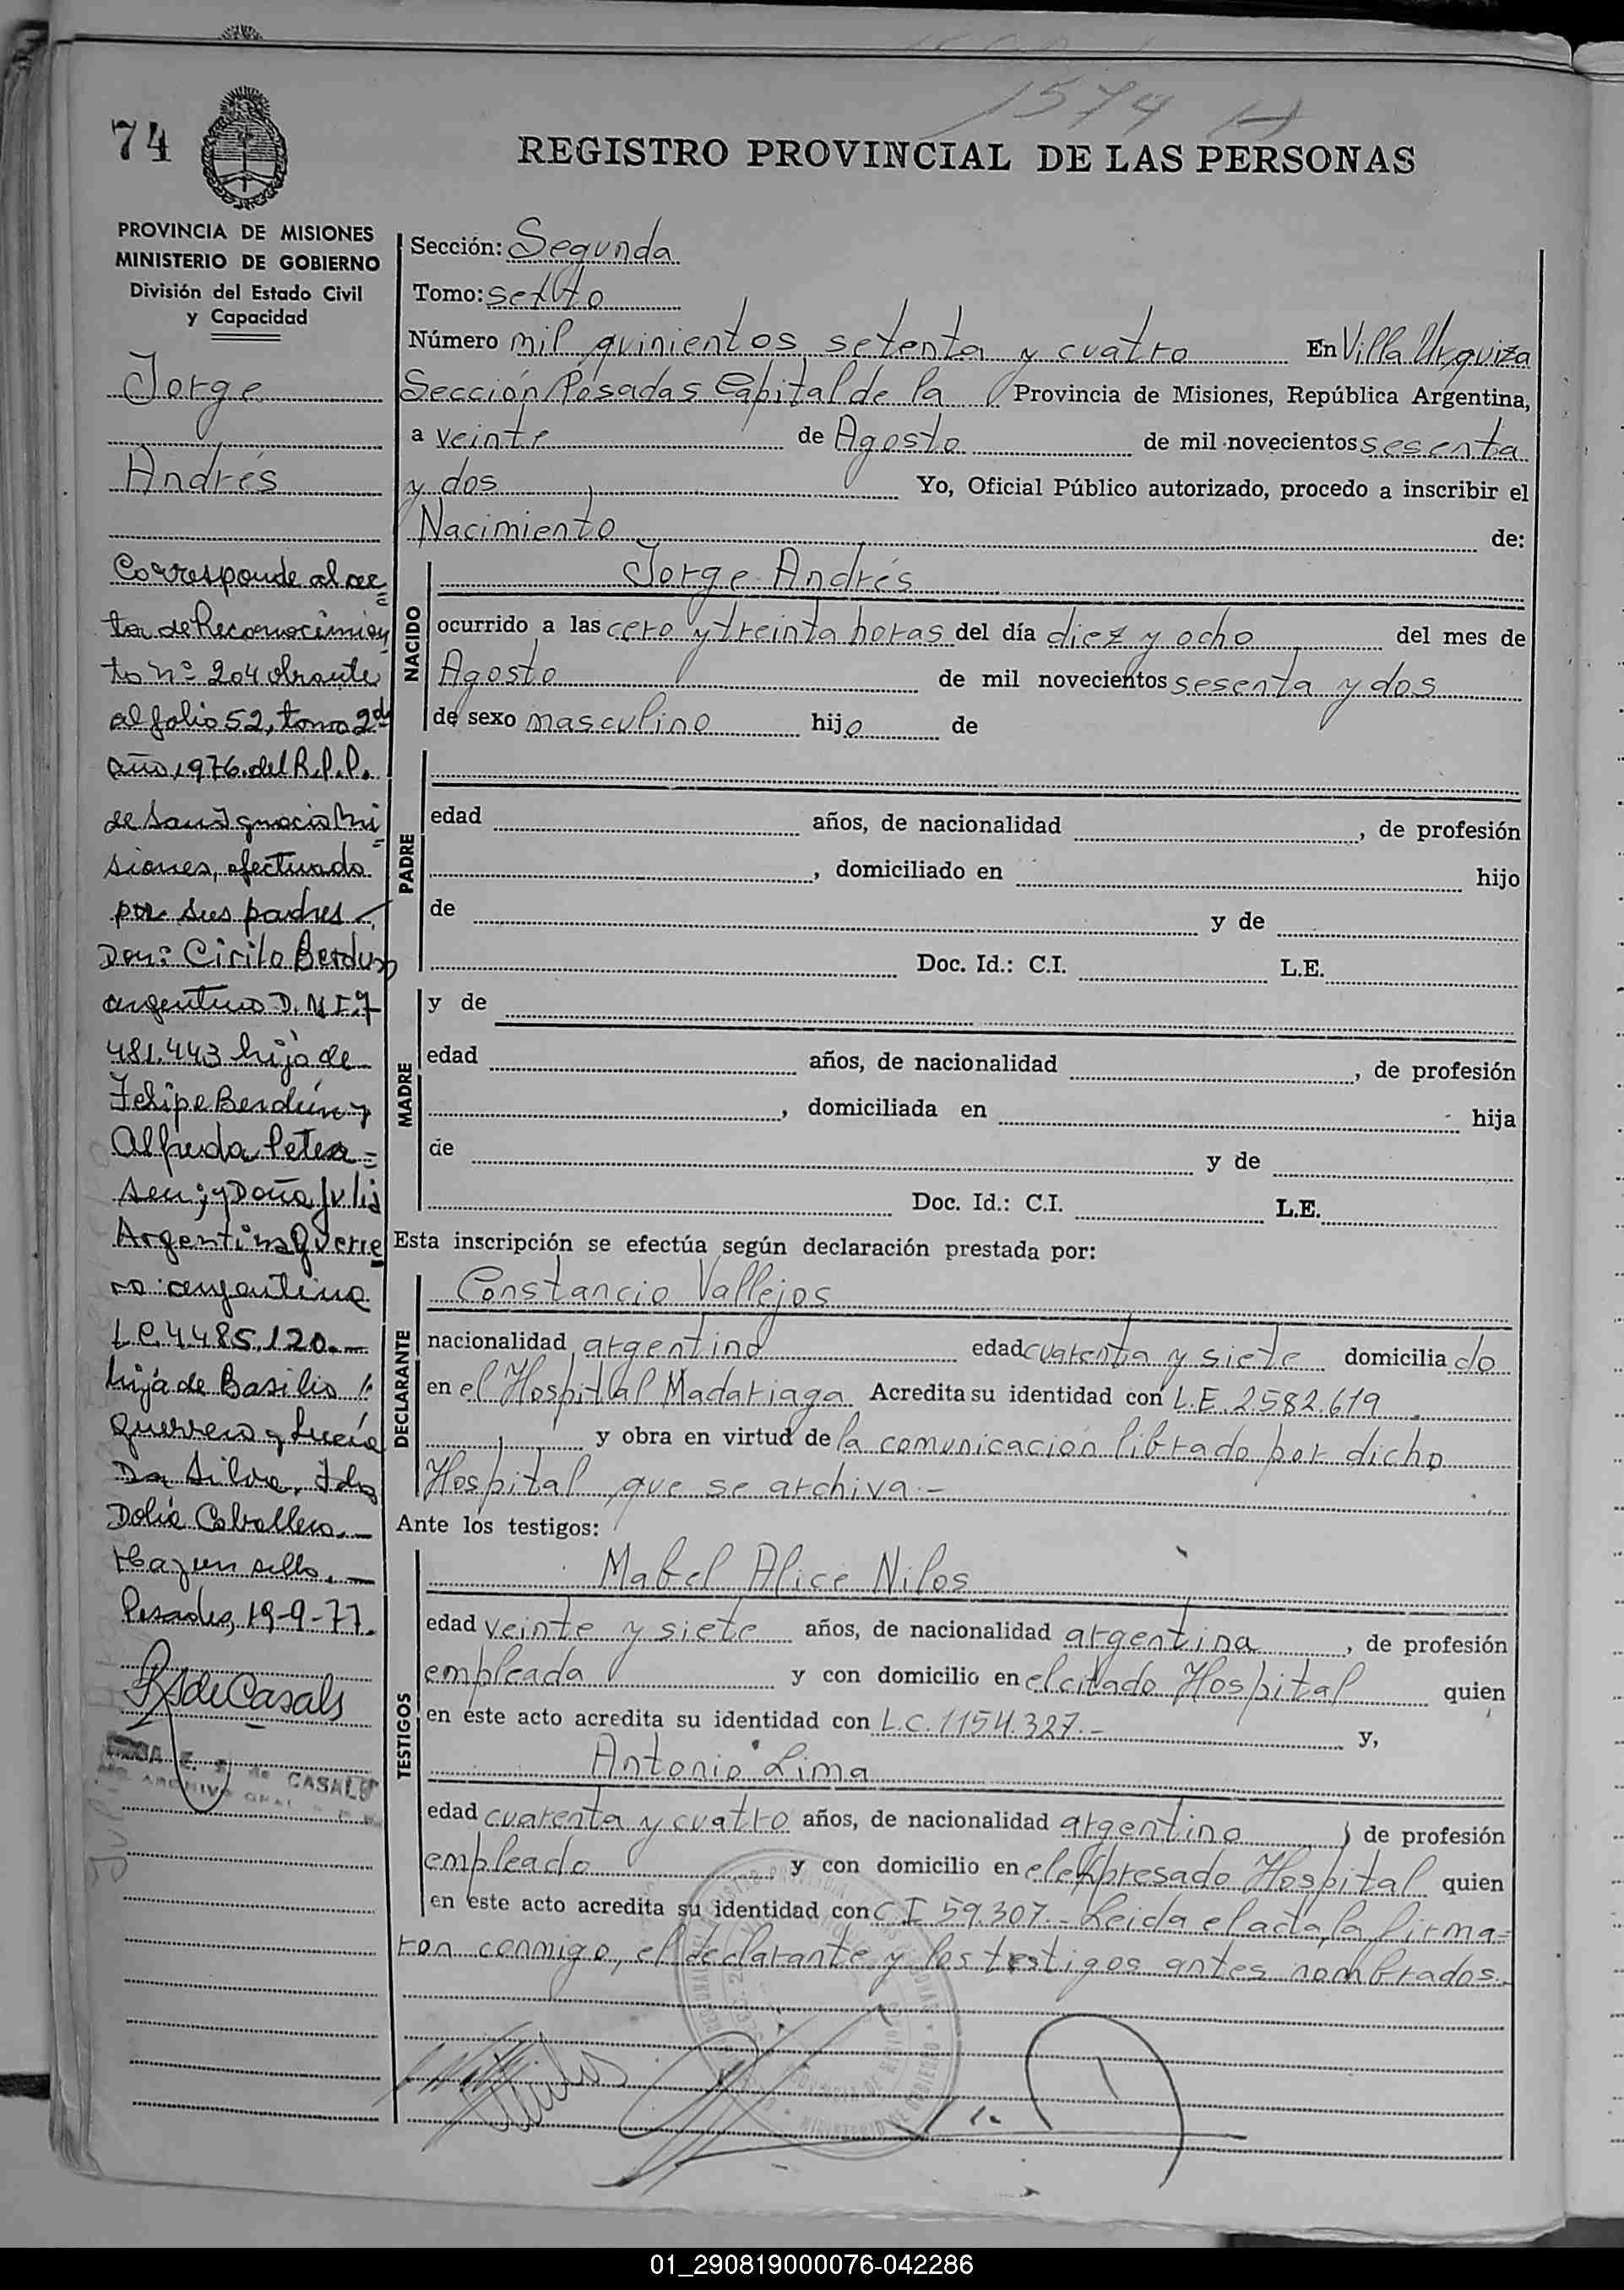 1574
74
REGISTRO PROVINCIAL DE LAS PERSONAS
PROVINCIA DE MISIONES
MINISTERIO DE GOBIERNO
División del Estado Civil
y Capacidad
Jorge
Andrés
Corresponde al ac=
ta de Reconocimien
to nº 204 obrante
al folio 52, tomo 2do
año 1976 del R.P.P.
de San Ignacio Mi=
siones, efectuado
por sus padres
Don: Cirilo Berdun
argentino D.N.I. 7
481.443 hijo de
Felipe Berdún y
Alfreda Peter=
sen; y Doña Julia
Argentina Guerre
ro argentina
L.C. 4485.120.—
hija de Basilio
Guerrero y Lucía
Da Silva. Fdo
Delia Caballero.—
Hay un sello.—
Posadas, 19-9-77.
R S de Casals
de CASALS
Sección: Segunda
Tomo: sexto
Número mil quinientos setenta y cuatro En Villa Urquiza
Sección Posadas Capital de la Provincia de Misiones, República Argentina,
a veinte de Agosto de mil novecientos sesenta
y dos Yo, Oficial Público autorizado, procedo a inscribir el
Nacimiento de:
NACIDO
Jorge Andrés
ocurrido a las cero y treinta horas del día diez y ocho del mes de
Agosto de mil novecientos sesenta y dos
de sexo masculino hijo de
PADRE
edad años, de nacionalidad , de profesión
, domiciliado en hijo
de y de
Doc. Id.: C.I. L.E.
MADRE
y de
edad años, de nacionalidad , de profesión
, domiciliada en hija
de y de
Doc. Id.: C.I. L.E.
Esta inscripción se efectúa según declaración prestada por:
DECLARANTE
Constancio Vallejos
nacionalidad argentino edad cuarenta y siete domiciliado
en el Hospital Madariaga Acredita su identidad con L.E. 2.582.619
y obra en virtud de la comunicación librado por dicho
Hospital que se archiva.-
Ante los testigos:
TESTIGOS
Mabel Alice Nilos
edad veinte y siete años, de nacionalidad argentina, de profesión
empleada y con domicilio en el citado Hospital quien
en este acto acredita su identidad con L.C. 1154.327.- y,
Antonio Lima
edad cuarenta y cuatro años, de nacionalidad argentino, de profesión
empleado y con domicilio en el expresado Hospital quien
en este acto acredita su identidad con C I 59.307.- Leida el acta, la firma=
ron conmigo, el declarante y los testigos antes nombrados.-
01_290819000076-042286